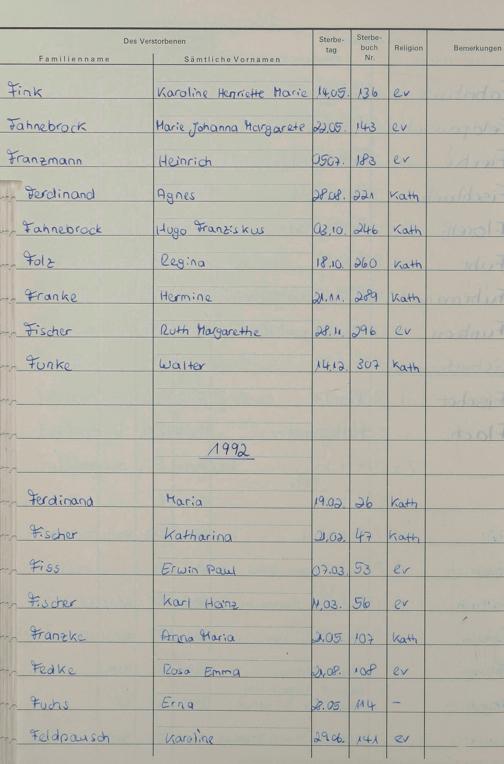 Des Verstorbenen Sterbe- tag Sterbe- buch Nr. Religion Bemerkungen
Familienname Sämtliche Vornamen
Fink Karoline Henriette Marie 14.05. 136 ev
Fahnebrock Marie Johanna Margarete 22.05. 143 ev
Franzmann Heinrich 0507. 183 ev
Ferdinand Agnes 28.08. 221 Kath
Fahnebrock Hugo Franziskus 03.10. 246 Kath
Folz Regina 18.10. 260 Kath
Franke Hermine 21.11. 289 Kath
Fischer Ruth Margarethe 28.11. 296 ev
Funke Walter 14.12. 307 Kath
1992
Ferdinand Maria 19.02. 26 Kath
Fischer Katharina 21.02. 47 Kath
Fiss Erwin Paul 07.03. 53 ev
Fischer Karl Heinz 11.03. 56 ev
Franzke Anna Maria 107 Kath
Fedke Rosa Emma 108 ev
Fuchs Erna 114 –
Feldpausch Karoline 29.06. 141 ev